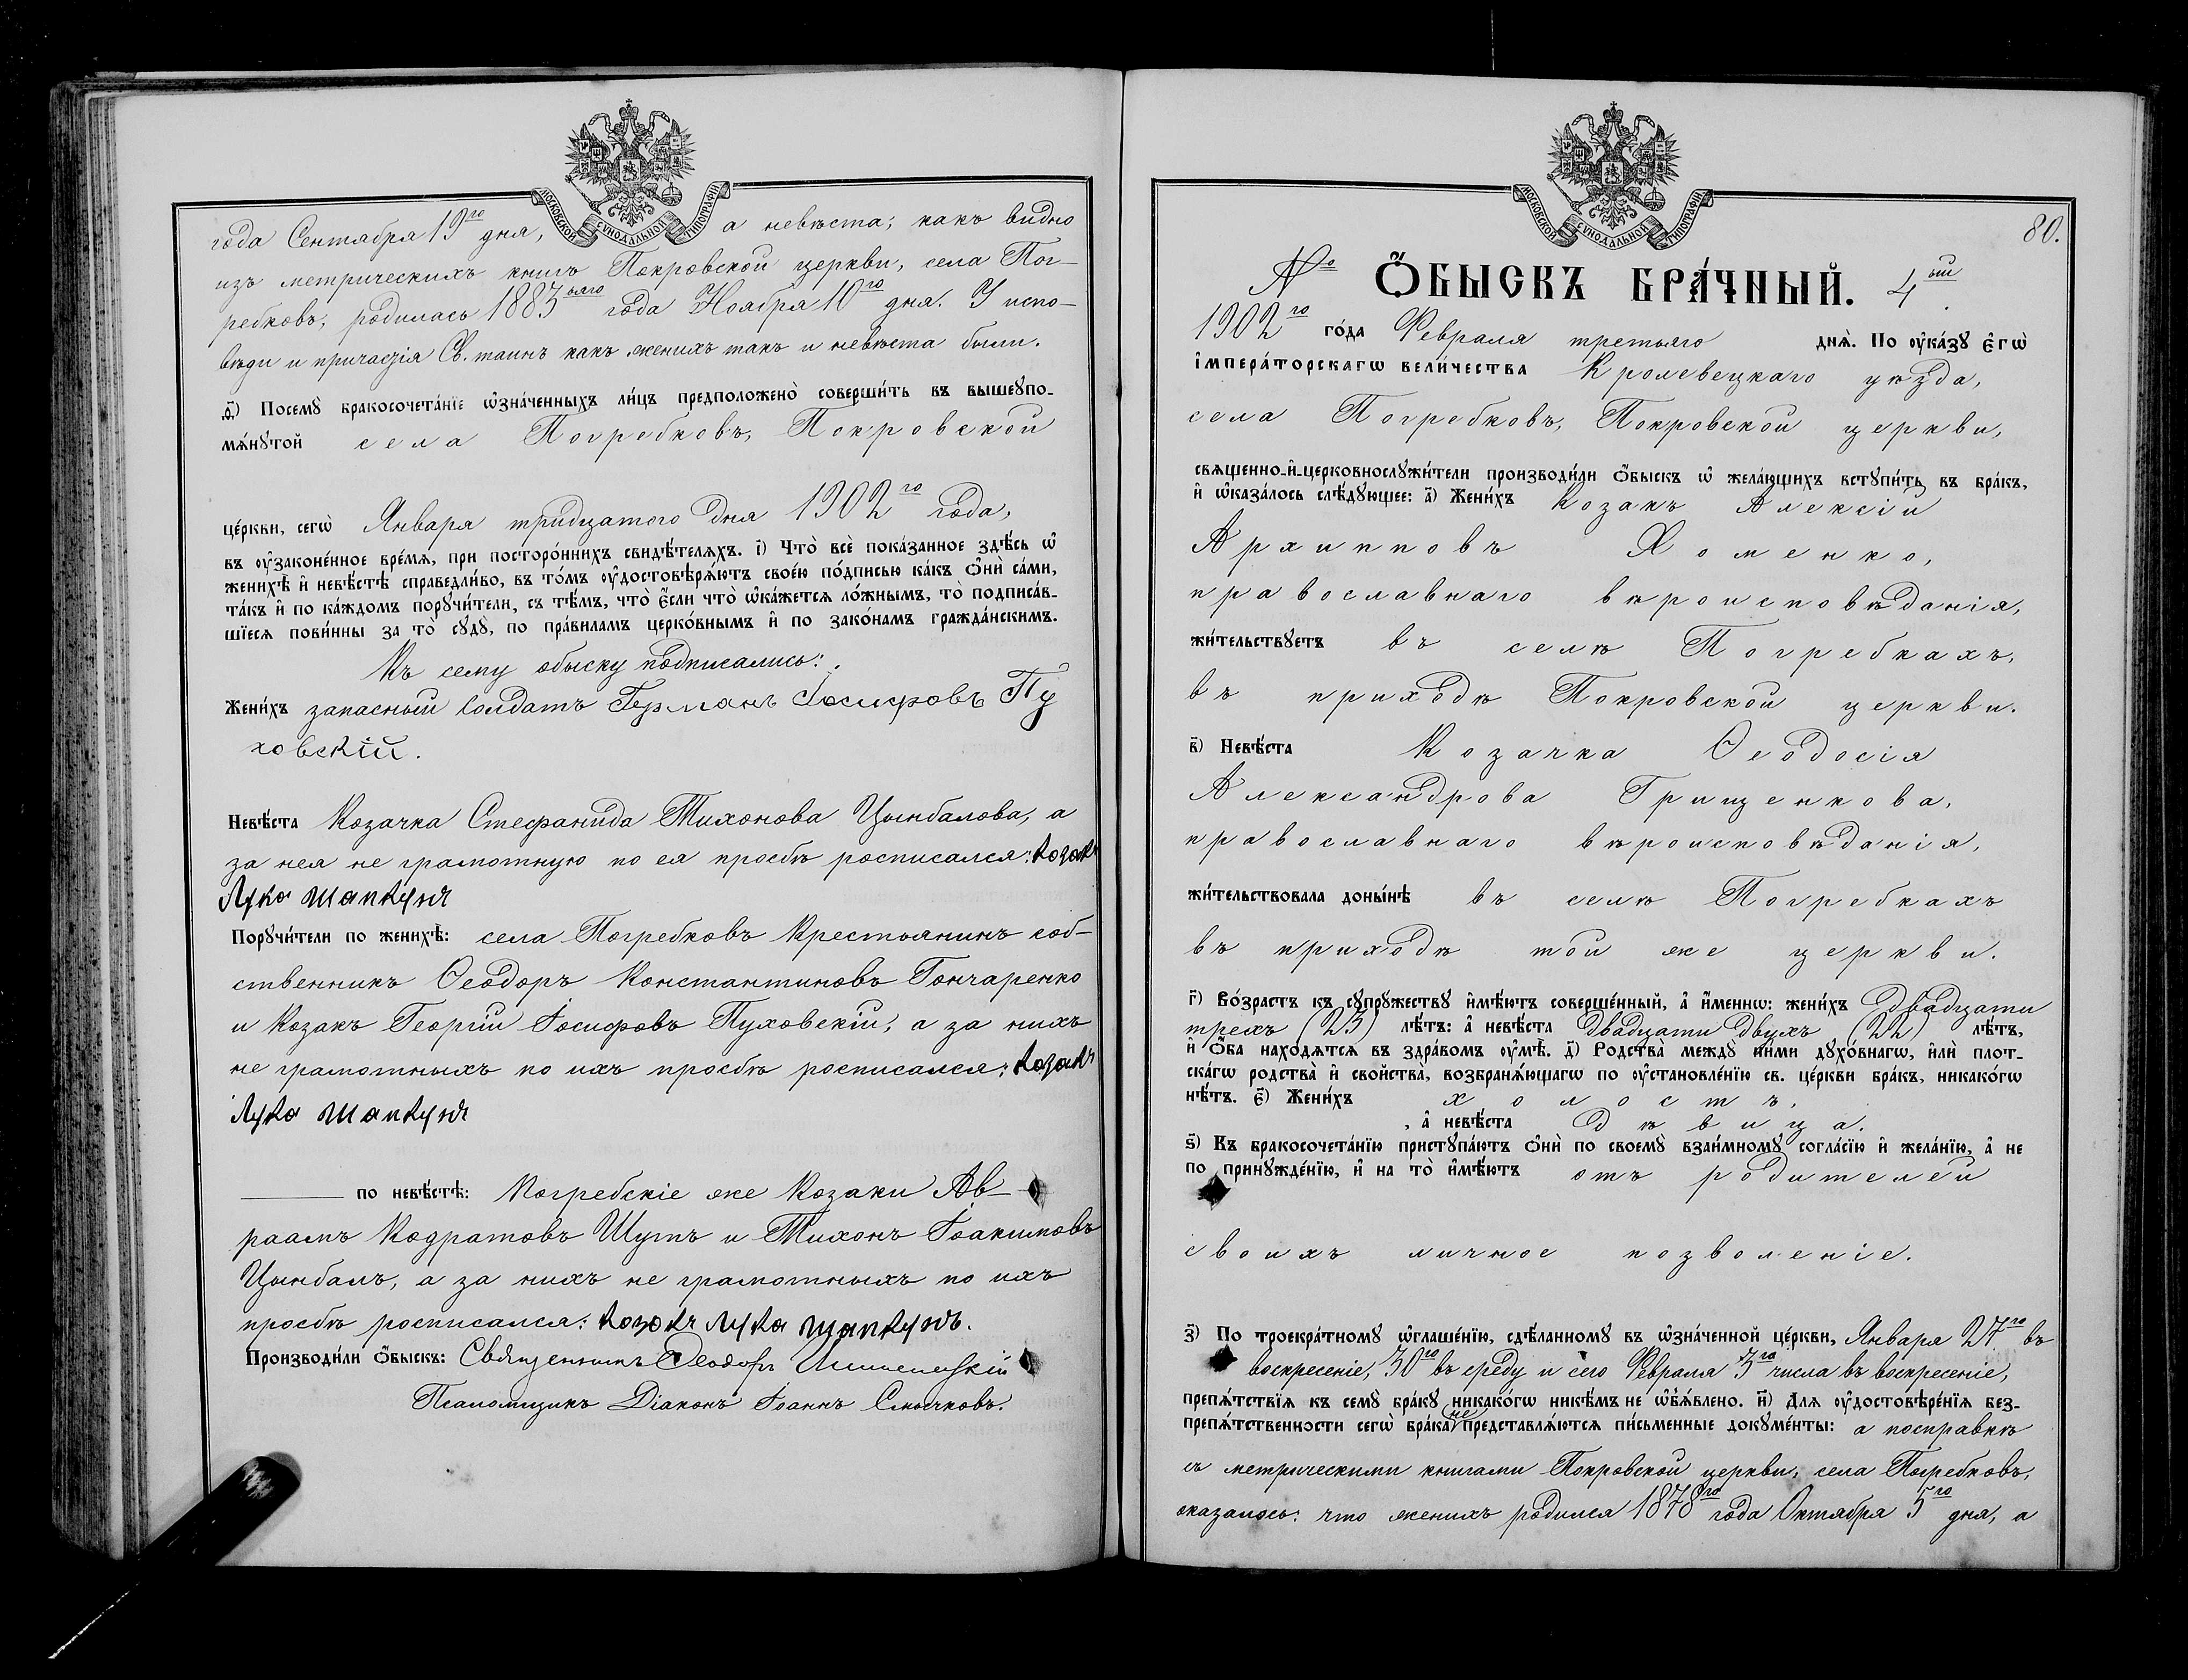 МОСКОВСКОЙ СѴНОДАЛЬНОЙ ТИПОГРАФІИ
года Сентября 19го дня, а невѣста, какъ видно
изъ метрическихъ книгъ Покровской церкви, села Пог-
ребковъ, родилась 1883ьяго года Ноября 10го дня. У испо-
вѣди и причастія Св. таинъ какъ женихъ такъ и невѣста были.
Посемꙋ̀ бракосочета́нїе ѡ҆зна́ченныхъ ли́цъ предположено̀ соверши́ть въ вышеꙋпо-
мѧ́нꙋтой села Погребковъ, Покровской
це́ркви, сегѡ̀ Января тридцатого дня 1902го года,
въ ᲂу҆законе́нное вре́мѧ, при посторо́ннихъ свидѣ́телѧхъ. і҃) Что̀ всѐ пока́занное здѣ́сь ѡ҆
женихѣ̀ и҆ невѣ́стѣ справедли́во, въ то́мъ ᲂу҆достовѣрѧ́ютъ свое́ю по́дписью ка́къ ѻ҆нѝ са́ми,
та́къ и҆ по ка́ждомъ порꙋчи́тели, съ тѣ́мъ, что̀ є҆́сли что̀ ѡ҆ка́жетсѧ ло́жнымъ, то̀ подписа́в-
шїесѧ пови́нны за то̀ сꙋдꙋ̀, по пра́виламъ церко́внымъ и҆ по зако́намъ гражда́нскимъ.
Къ сему обыску подписались:
Жени́хъ запасный солдатъ Германъ Іосифовъ Пу
ховскій.
Невѣ́ста Козачка Стефанида Тихонова Цымбалова, а
за нея не грамотную по ея просьбѣ росписался: козакъ
Лука Шапкунъ
Порꙋчи́тели по женихѣ̀: села Погребковъ Крестьянинъ соб-
ственникъ Ѳеодоръ Константиновъ Гончаренко
и Козакъ Георгій Іосифовъ Пуховскій, а за нихъ
не грамотныхъ по ихъ просьбѣ росписался: козакъ
Лука Шапкунъ
по невѣ́стѣ: Погребскіе же Козаки Ав-
раамъ Кодратовъ Шутъ и Тихонъ Іоакимовъ
Цымбалъ, а за нихъ не грамотныхъ по ихъ
просьбѣ росписался: козакъ Лука Шапкунъ.
Производи́ли ѻ҆́быскъ: Священникъ Ѳеодоръ
Псаломщикъ Діаконъ Іоаннъ Смычковъ.
МОСКОВСКОЙ СѴНОДАЛЬНОЙ ТИПОГРАФІИ
80.
№ Ѻ҆́БЫСКЪ БРА́ЧНЫЙ. 4ый
1902го го́да Февраля третьяго днѧ̀. По ᲂу҆ка́зꙋ є҆гѡ̀
і҆мпера́торскагѡ вели́чества Кролевецкаго уѣзда,
села Погребковъ, Покровской церкви,
свѧщенно-и҆-церковнослꙋжи́тели производи́ли ѻ҆́быскъ ѡ҆ жела́ющихъ вступи́ть въ бра́къ,
и҆ ѡ҆каза́лось слѣ́дꙋющее: а҃) Жени́хъ Козакъ Алексій
Архипповъ Хоменко,
православнаго вѣроисповѣданія,
жи́тельствꙋетъ въ селѣ Погребкахъ,
въ приходѣ Покровской церкви.
в҃) Невѣ́ста Козачка Ѳеодосія
Александрова Грищенкова,
православнаго вѣроисповѣданія,
жи́тельствовала доны́нѣ въ селѣ Погребкахъ
въ приходѣ той же церкви.
г҃) Во́зрастъ къ сꙋпрꙋ́жествꙋ и҆мѣ́ютъ соверше́нный, а҆ и҆́меннѡ: жени́хъ двадцати
трехъ (23) лѣ́тъ: а҆ невѣ́ста двадцати двухъ (22) лѣ́тъ,
и҆ ѻ҆́ба нахо́дѧтсѧ въ здра́вомъ ᲂу҆мѣ̀. д҃) Родства̀ междꙋ̀ ни́ми дꙋхо́внагѡ, и҆лѝ плот-
ска́гѡ родства̀ и҆ свойства̀, возбранѧ́ющагѡ по ᲂу҆становле́нїю св. це́ркви бра́къ, никако́гѡ
нѣ́тъ. є҃) Жени́хъ холостъ,
, а҆ невѣ́ста дѣвица.
ѕ҃) Къ бракосочета́нїю пристꙋпа́ютъ ѻ҆нѝ по своемꙋ̀ взаи́мномꙋ согла́сїю и҆ жела́нїю, а҆ не
по принꙋжде́нїю, и҆ на то̀ и҆мѣ́ютъ отъ родителей
своихъ личное позволеніе.
з҃) По троекра́тномꙋ ѡ҆глаше́нїю, сдѣ́ланномꙋ въ ѡ҆зна́ченной це́ркви, Января 27го въ
воскресеніе, 30го въ среду и сего Февраля 3го числа въ воскресеніе,
препѧ́тствїѧ къ семꙋ̀ бра́кꙋ никако́гѡ никѣ́мъ не ѡ҆б̾ѧ́влено. и҃) Длѧ ᲂу҆достовѣре́нїѧ без-
препѧ́тственности сегѡ̀ бра́ка не представлѧ́ютсѧ пи́сьменные докꙋме́нты: а посправкѣ
съ метрическими книгами Покровской церкви, села Погребковъ,
оказалось: что женихъ родился 1878го года Октября 5го дня, а